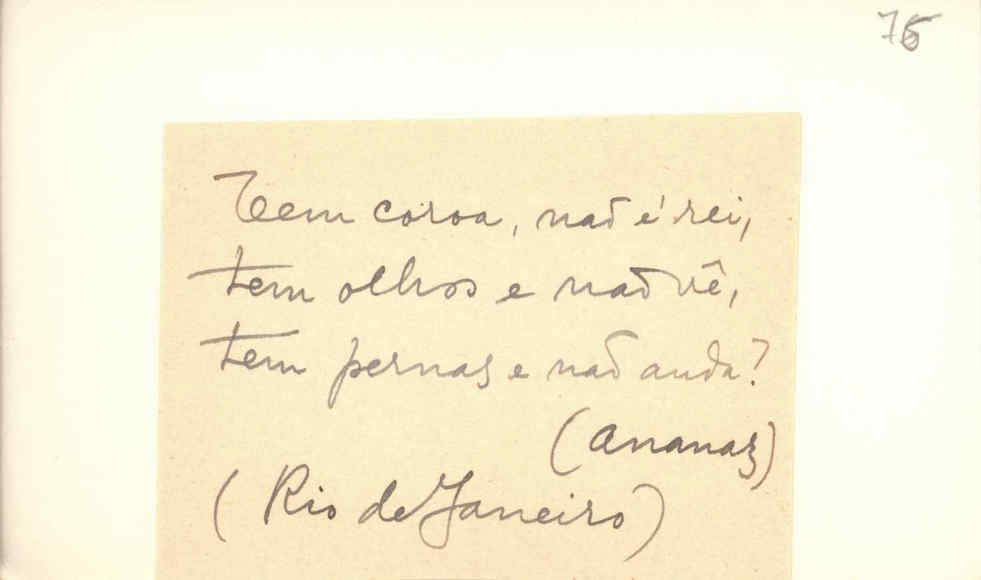 Tem coroa, não é rei,
tem olhos e não vê,
tem pernas e não anda?
(Ananaz)
(Rio de Janeiro)